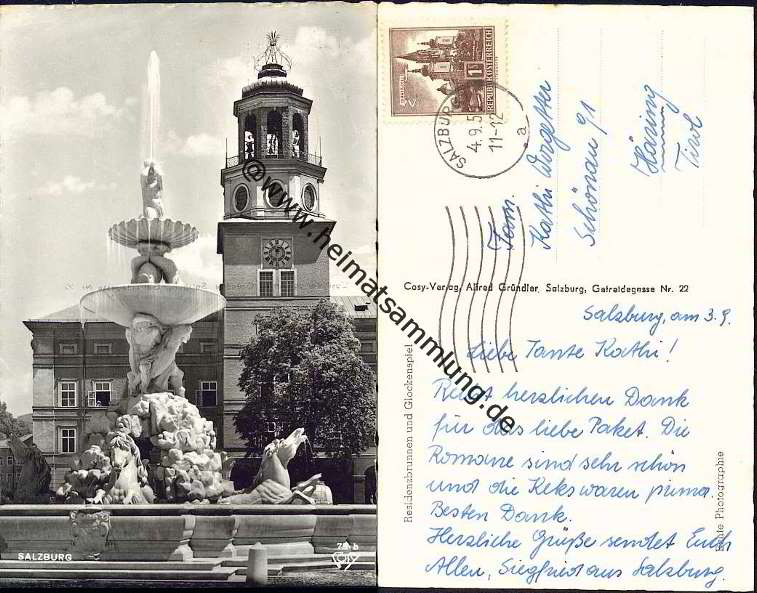 SALZBURG
REPUBLIK ÖSTERREICH
SALZBURG
4.9.5
11-12
a
Fam.
Kathi
Schönau 91
Häring
Tirol
Cosy-Verlag, Alfred Gründler, Salzburg, Getreidegasse Nr. 22
Residenzbrunnen und Glockenspiel
Photographie
Salzburg, am 3.9.
Liebe Tante Kathi!
Recht herzlichen Dank
für das liebe Paket. Die
Romane sind sehr schön
und die Keks waren prima.
Besten Dank.
Herzliche Grüße sendet Euch
Allen, Siegfried aus Salzburg.
@www.heimatsammlung.de